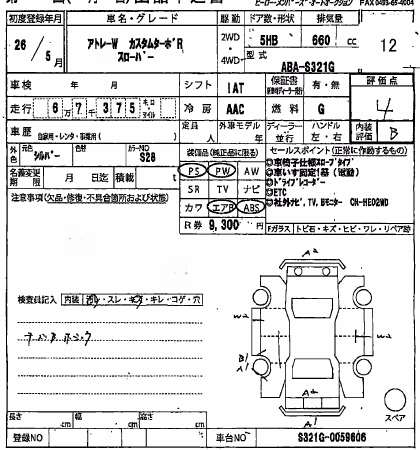 FAX 0493-65-4004
初度登録年月 車名・グレード 駆動 ドア数・形状 排気量
26/5月 アトレーW カスタムターボR スローパー 2WD・4WD 5HB 660 cc 12
型式 ABA-S321G
車検 年 月 シフト 1AT 保証書 有・無 評価点 4
走行 6万7千375 キロ マイル 冷房 AAC 燃料 G
車歴 自家用・レンタ・事業用( ) 定員 人 外車モデル 年 ディーラー・並行 ハンドル 左・右 内装評価 B
外色 元色 シルバー 色替 カラーNO S28
装備品(純正品に限る) セールスポイント(正常に作動するもの)
名義変更期限 月 日迄 積載 t
PS PW AW
SR TV ナビ
カワ エアB ABS
R券 9,300円
◎車椅子仕様スロープタイプ
◎車いす固定1基(電動)
◎ドライブレコーダー
◎ETC
◎社外ナビ,TV,Bモニター CN-HE02WD
注意事項(欠品・修復・不具合箇所および状態)
Fガラス トビ石・キズ・ヒビ・ワレ・リペア跡
検査員記入 内装 汚レ・スレ・キズ・キレ・コゲ・穴
A2
W2
W2
B1
A1
A2
A1
スペア
長さ cm 幅 cm 高さ cm
登録NO 車台NO S321G-0059606